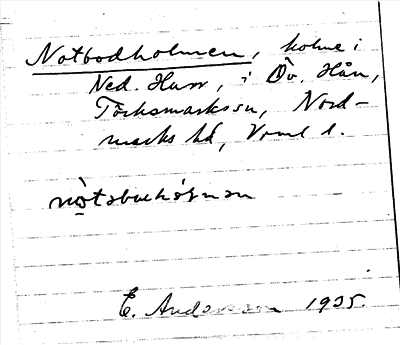 Notbodholmen, holme i
Ned. Hurr, i Öv. Hån,
Töcksmarks sn, Nord-
marks hd, Vrml l.
E. Andersson 1935.